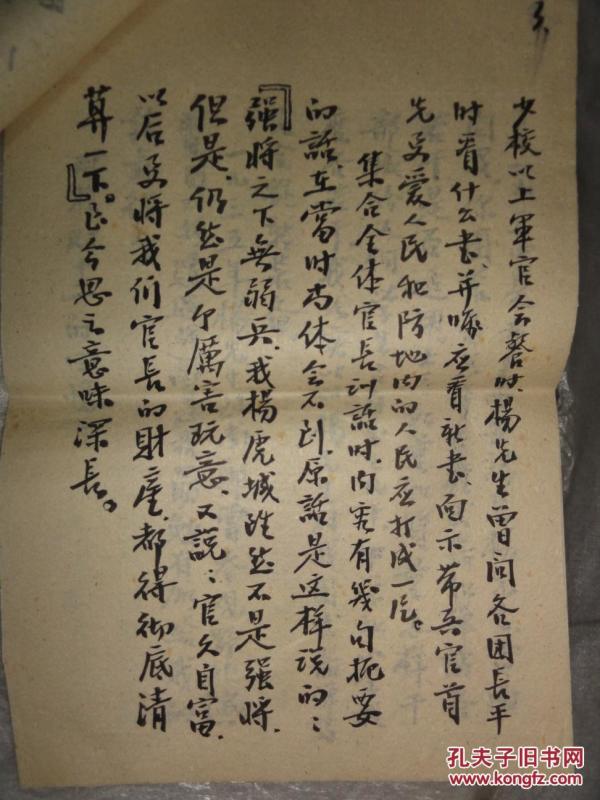 少校以上軍官会餐时,楊先生曾问各团长平
时看什么书,并嘱应看新书,面示带兵官首
先要爱人民和防地内的人民应打成一片。
集合全体官长训話时,内容有幾句扼要
的話,在當时尚体会不到,原話是这样说的:
『强将之下無弱兵,我楊虎城雖然不是强将,
但是,仍然是个厲害玩意,又説:官久自富,
以后要将我们官长的财產,都得彻底清
算一下。』迄今思之意味深长。
孔夫子旧书网
www.kongfz.com